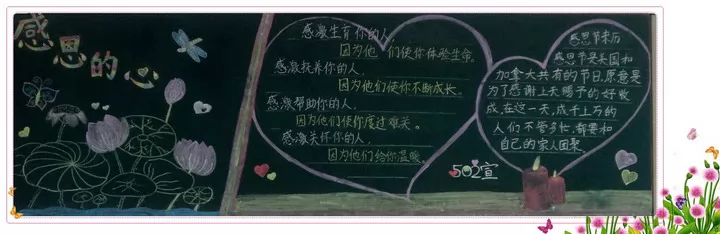 感恩的心
感激生育你的人,
因为他们使你体验生命。
感激抚养你的人,
因为他们使你不断成长。
感激帮助你的人,
因为他们使你度过难关。
感激关怀你的人,
因为他们给你温暖。
502宣
感恩节来历
感恩节是美国和
加拿大共有的节日,原意是
为了感谢上天赐予的好收
成,在这一天,成千上万的
人们不管多忙,都要和
自己的家人团聚